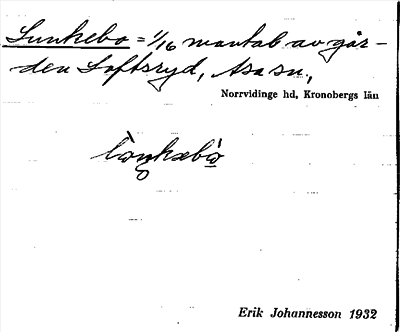 Lunkebo = 1/16 mantal av går-
den Loftsryd, Asa sn.,
Norrvidinge hd, Kronobergs län
Erik Johannesson 1932